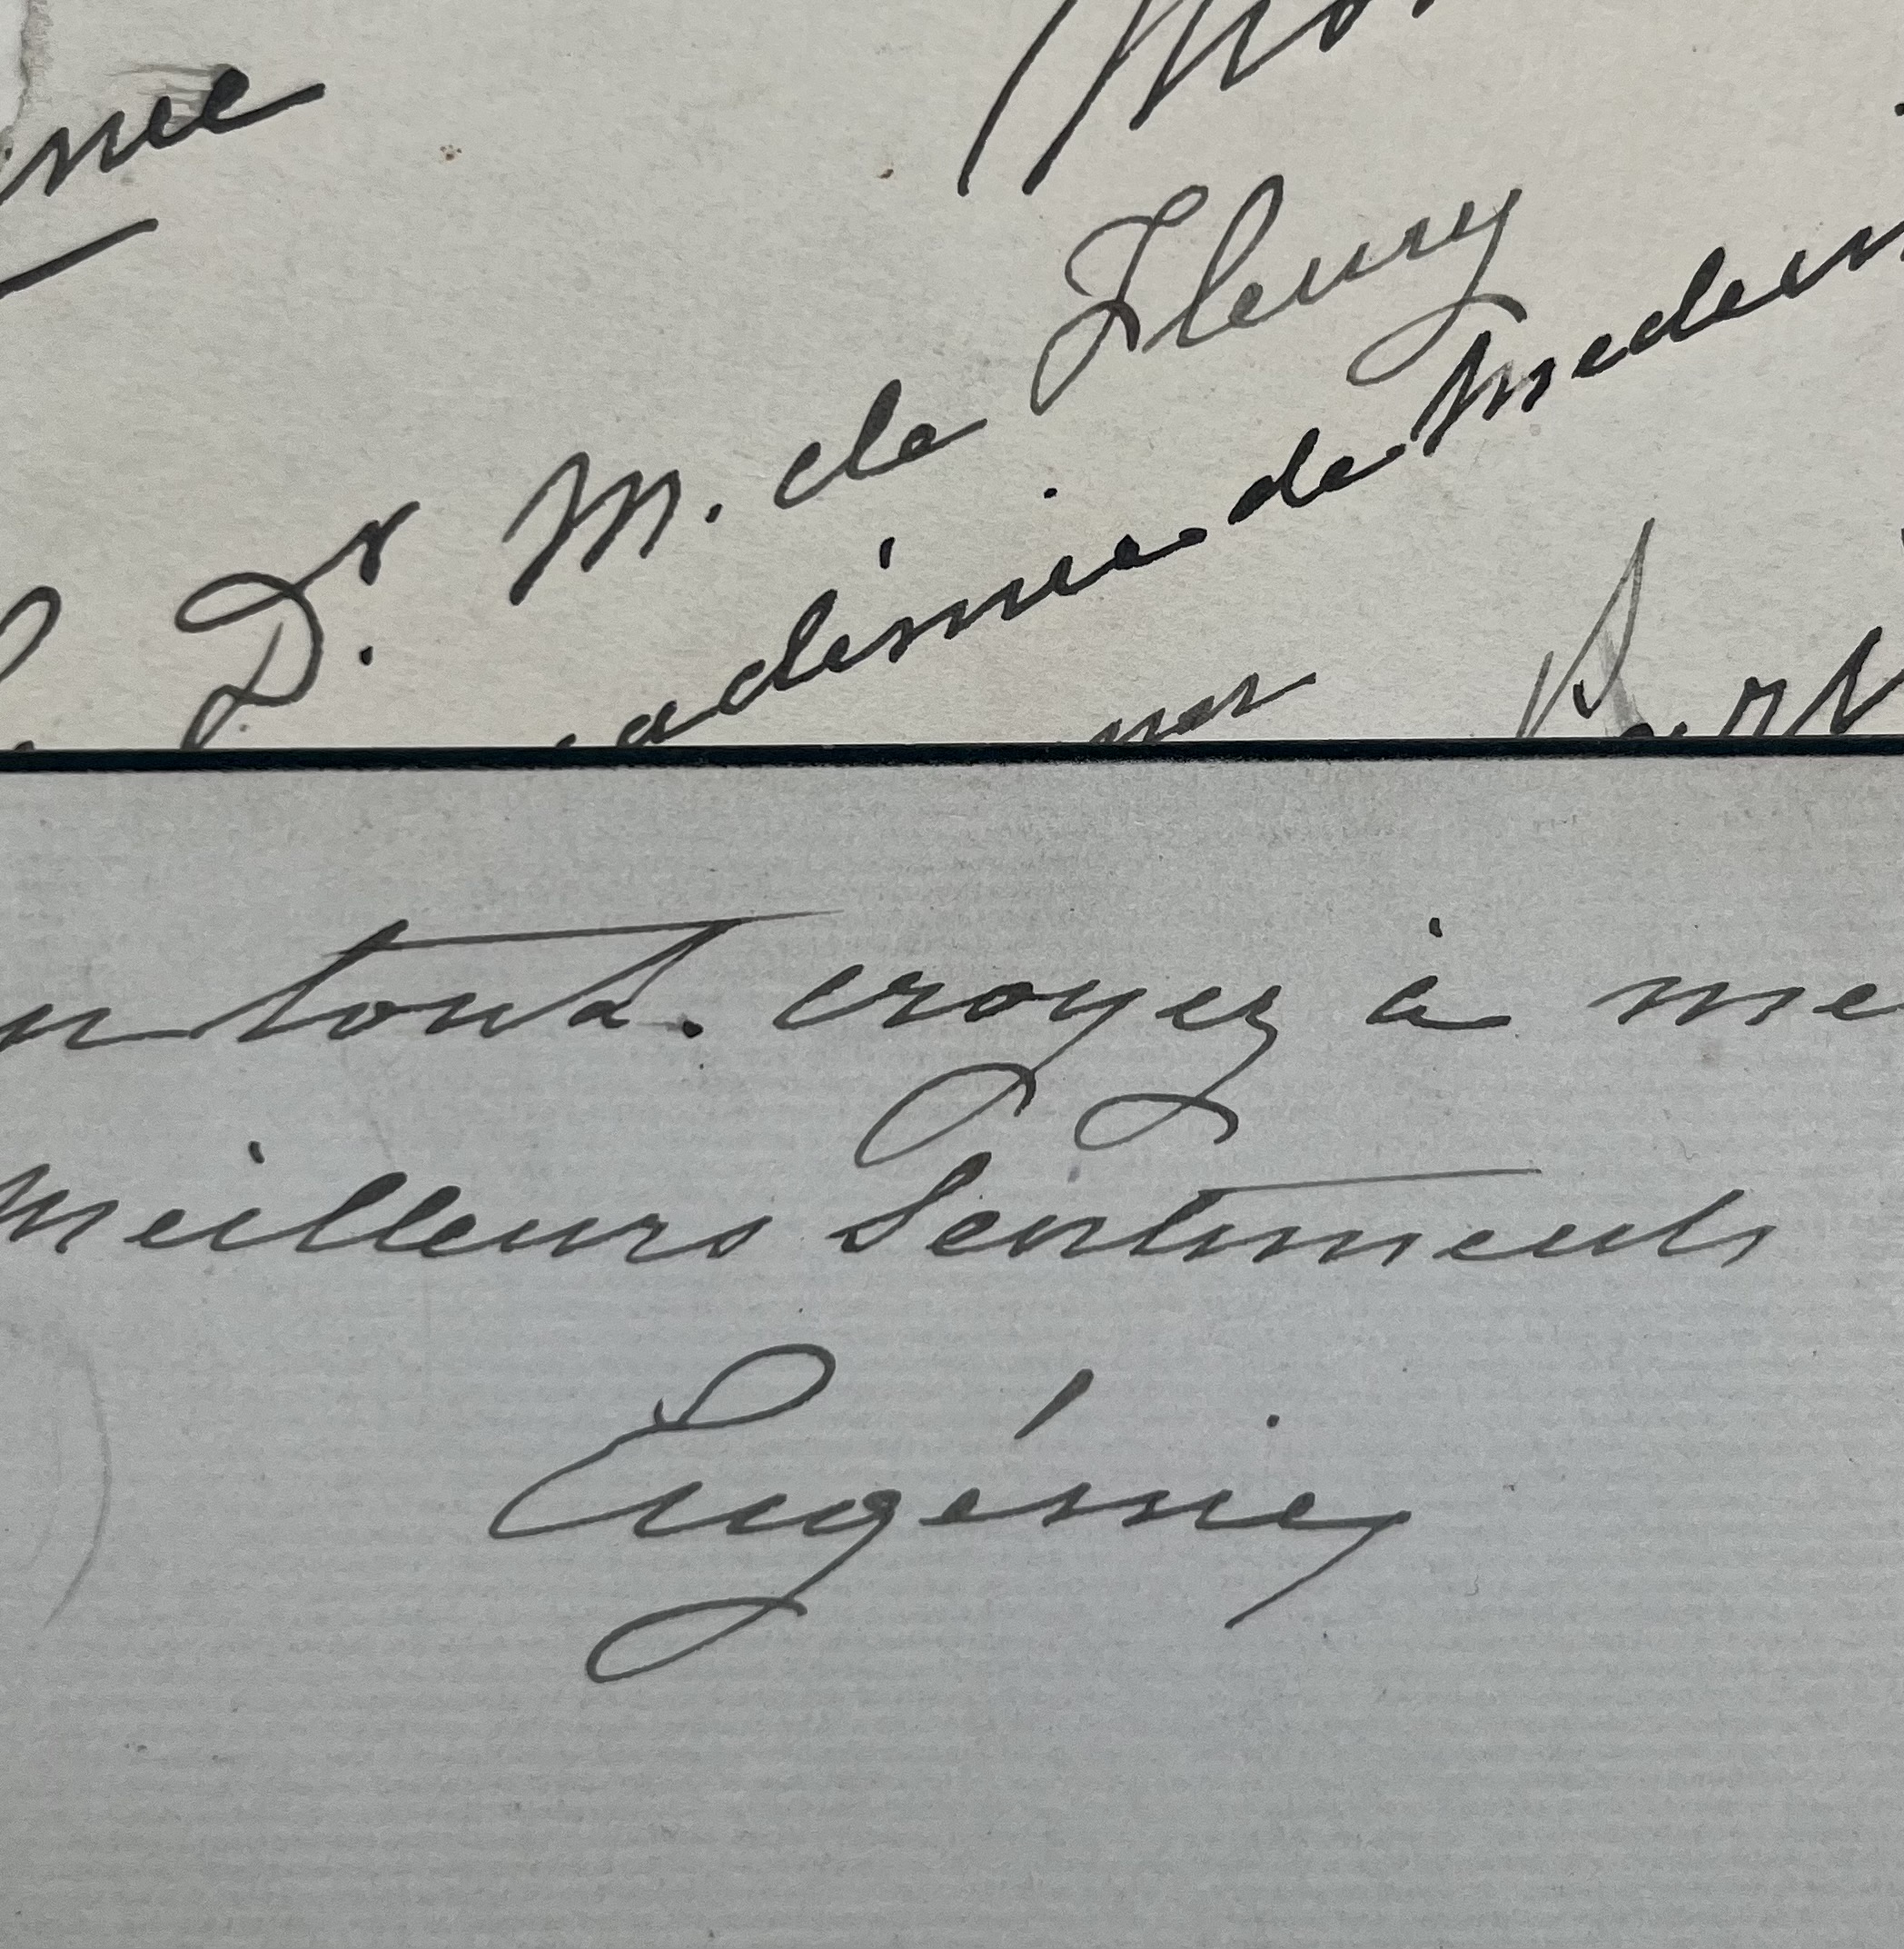 Mo
Dr. M. de Fleury
adémie de Medeci
Par
n tout. croyez à me
Meilleurs Sentiments
Eugénie